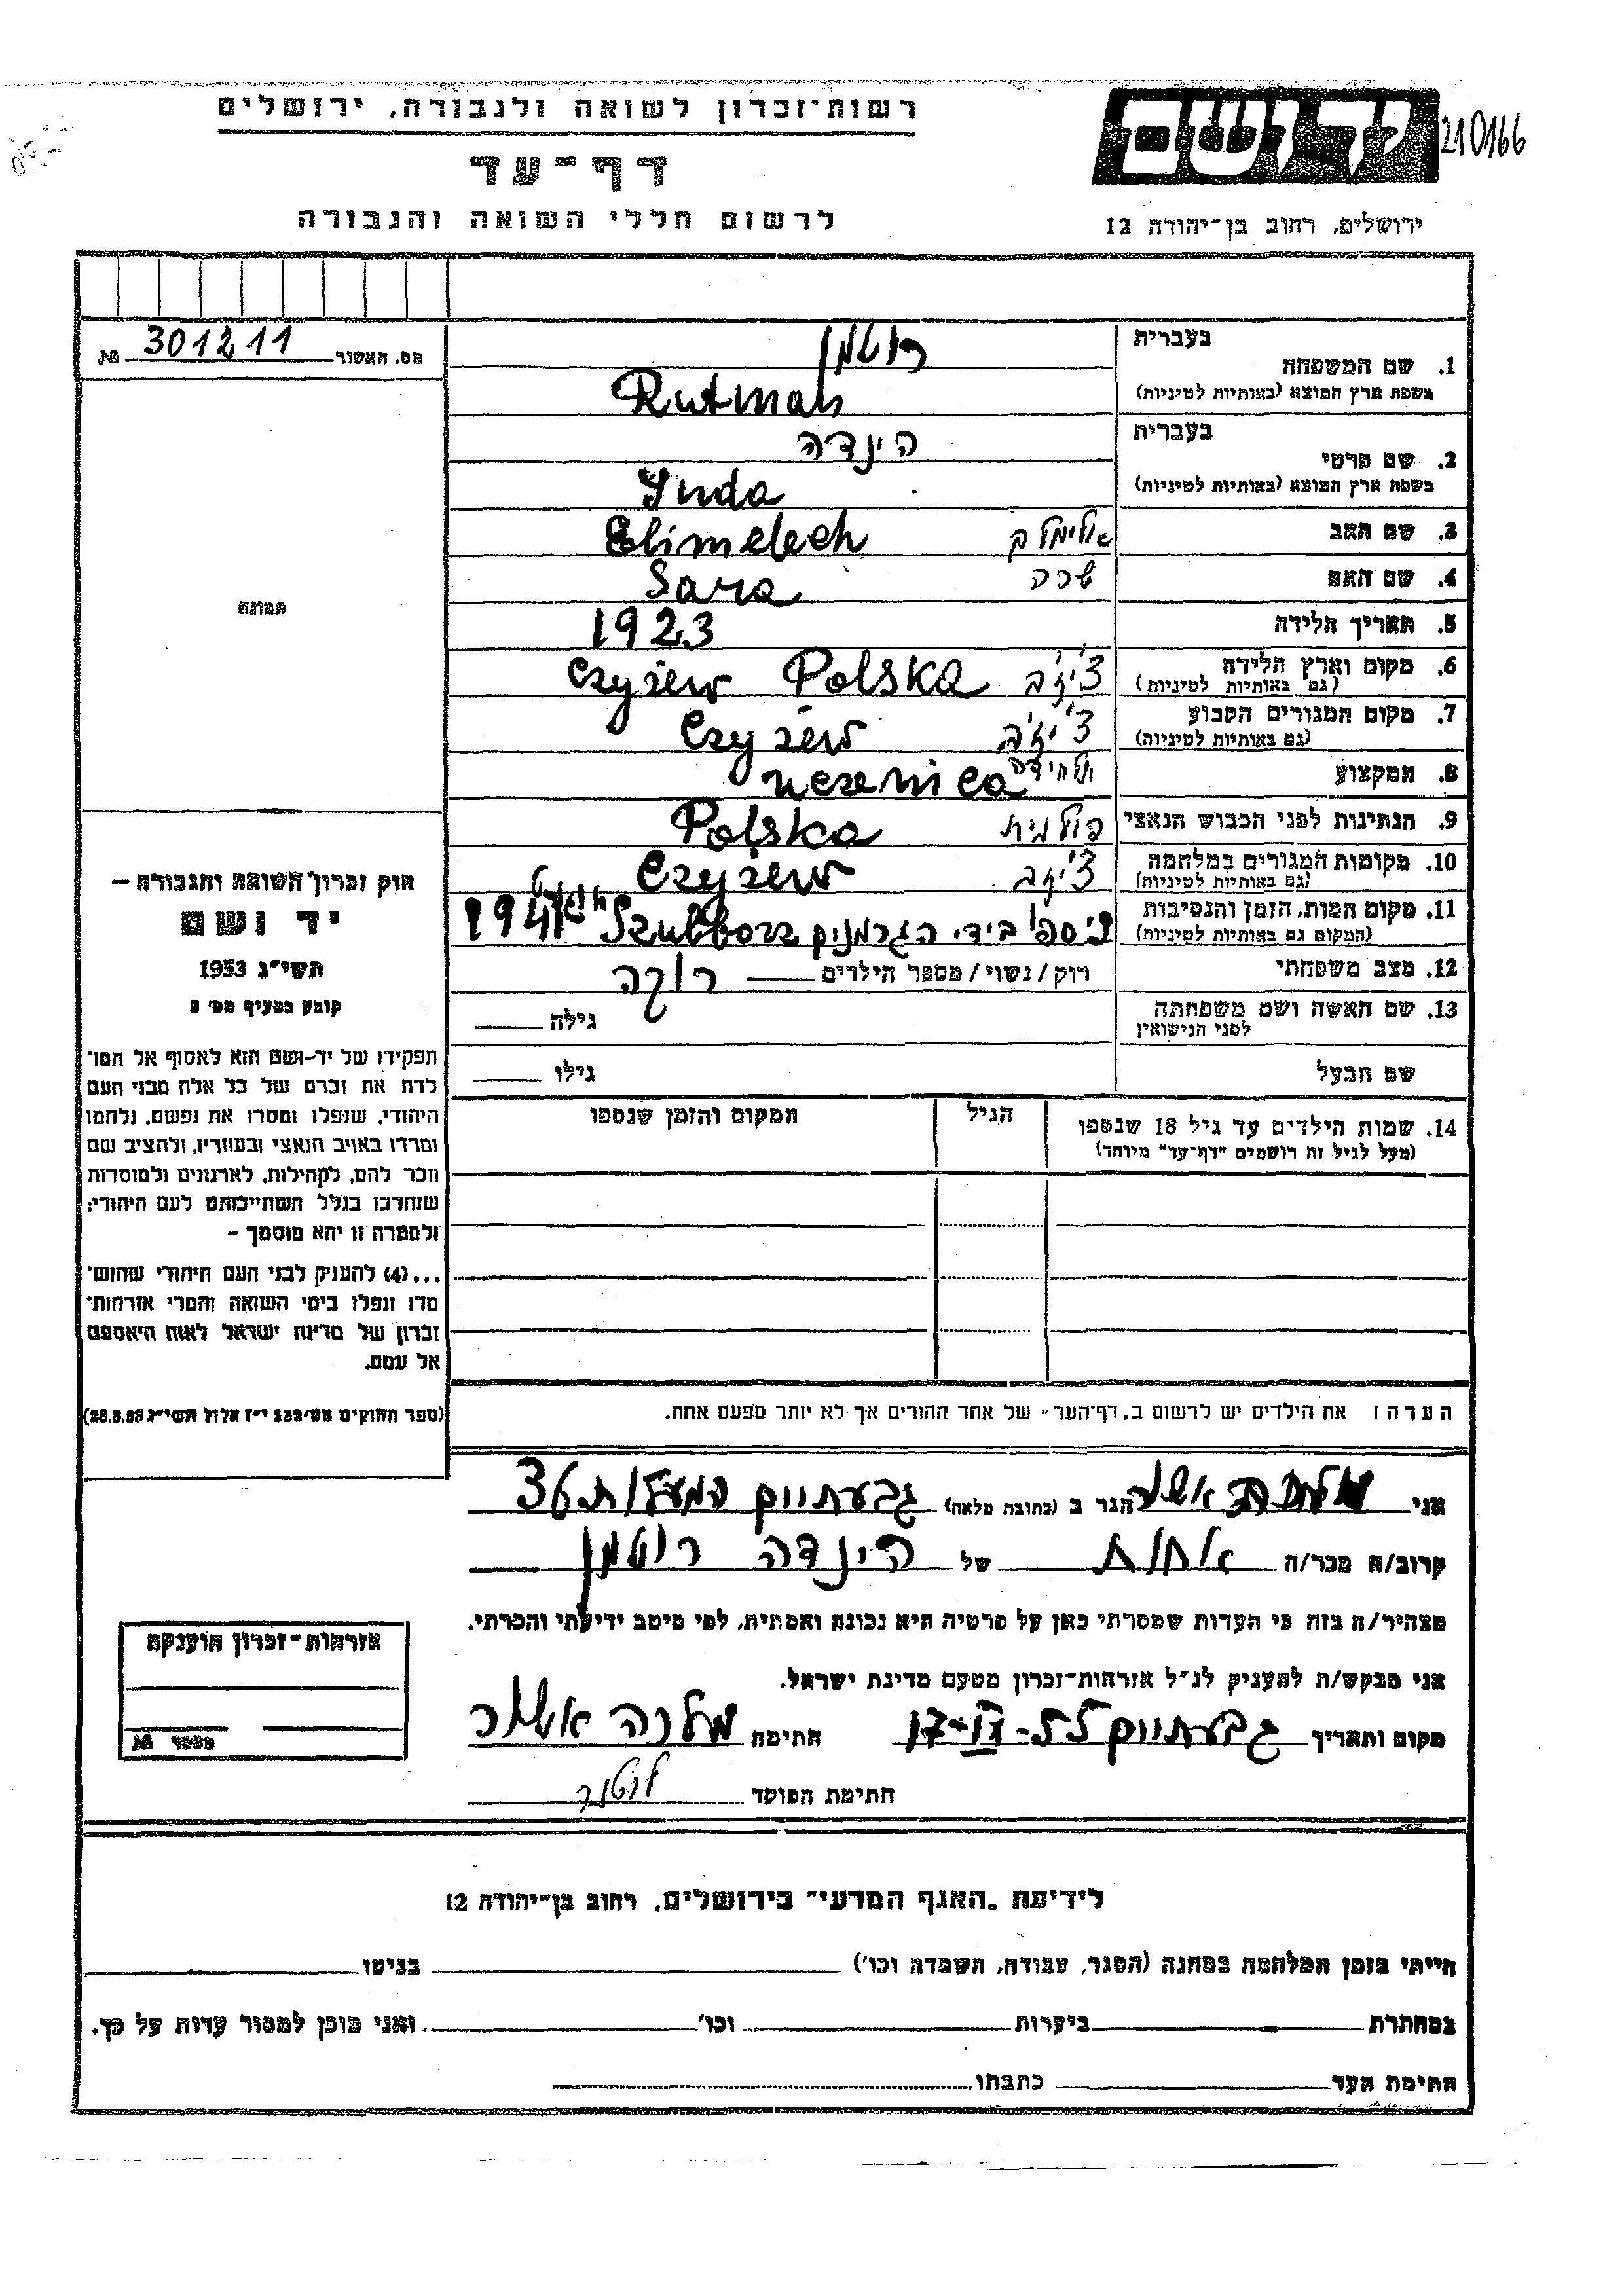 רשות-זכרון לשואה ולגבורה, ירושלים
דף-עד
לרשום חללי השואה והגבורה
יד ושם
210166
ירושלים, רחוב בן-יהודה 12
מס. האשור 301211 №
בעברית רוטמן
1. שם המשפחה
בשפת ארץ המוצא (באותיות לטיניות) Rutman
בעברית הינדה
2. שם פרטי
בשפת ארץ המוצא (באותיות לטיניות) Ynda
3. שם האב אלימלך Elimelech
4. שם האם שרה Sara
5. תאריך הלידה 1923
6. מקום וארץ הלידה צ'יז'ב Czyżew Polska
(גם באותיות לטיניות)
7. מקום המגורים הקבוע צ'יז'ב Czyżew
(גם באותיות לטיניות)
8. המקצוע תלמידה uczenica
9. הנתינות לפני הכבוש הנאצי פולנית Polska
10. מקומות המגורים במלחמה צ'יז'ב Czyżew
(גם באותיות לטיניות)
11. מקום המות, הזמן והנסיבות ניספו בידי הגרמנים אוגוסט 1941
(המקום גם באותיות לטיניות)
12. מצב משפחתי רוק/נשוי/מספר הילדים רוקה
13. שם האשה ושם משפחתה
לפני הנישואין גילה
שם הבעל גילו
14. שמות הילדים עד גיל 18 שנספו הגיל המקום והזמן שנספו
(מעל לגיל זה רושמים "דף-עד" מיוחד)
הערה: את הילדים יש לרשום ב"דף-העד" של אחד ההורים אך לא יותר מפעם אחת.
תמונה
חוק זכרון השואה והגבורה –
יד ושם
תשי"ג 1953
קובע בסעיף מס' 2
תפקידו של יד-ושם הוא לאסוף אל המו־
לדת את זכרם של כל אלה מבני העם
היהודי, שנפלו ומסרו את נפשם, נלחמו
ומרדו באויב הנאצי ובעוזריו, ולהציב שם
וזכר להם, לקהילות, לארגונים ולמוסדות
שנחרבו בגלל השתייכותם לעם היהודי;
ולמטרה זו יהא מוסמך –
...(4) להעניק לבני העם היהודי שהוש־
מדו ונפלו בימי השואה והמרי אזרחות־
זכרון של מדינת ישראל לאות היאספם
אל עמם.
(ספר החוקים מס' 132 י"ז אלול תשי"ג 28.8.53)
אני מלכה אשור הגר ב (כתובת מלאה) גבעתיים המעלות 36
קרוב/ה מכר/ה אחות של הינדה רוטמן
מצהיר/ה בזה כי העדות שמסרתי כאן על פרטיה היא נכונה ואמתית, לפי מיטב ידיעתי והכרתי.
אני מבקש/ת להעניק לנ"ל אזרחות-זכרון מטעם מדינת ישראל.
מקום ותאריך גבעתיים חתימה מלכה אשור
חתימת הפוקד
אזרחות-זכרון הוענקה
מספר №
לידיעת "האגף המדעי" בירושלים, רחוב בן-יהודה 12
הייתי בזמן המלחמה במחנה (הסגר, עבודה, השמדה וכו') בגיטו
במחתרת ביערות וכו' ואני מוכן למסור עדות על כך.
חתימת העד כתבתו